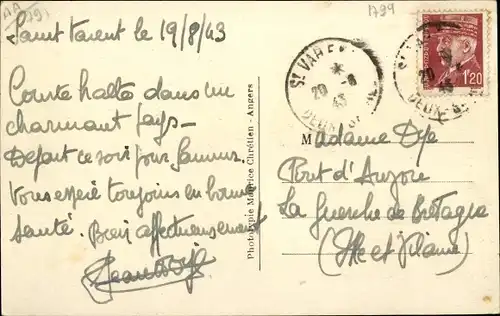 Saint Varent le 19/8/43
Courte halte dans un
charmant pays -
Départ ce soir pour Saumur.
Vous espère toujours en bonne
santé. Bien affectueusement
Phototypie Maurice Chrétien - Angers
1799
ST VARENT
20 -8
43
DEUX-SEVRES
1F20
M
Madame Dye
Pont d'Anzore
La Guerche de Bretagne
(Ille et Vilaine)